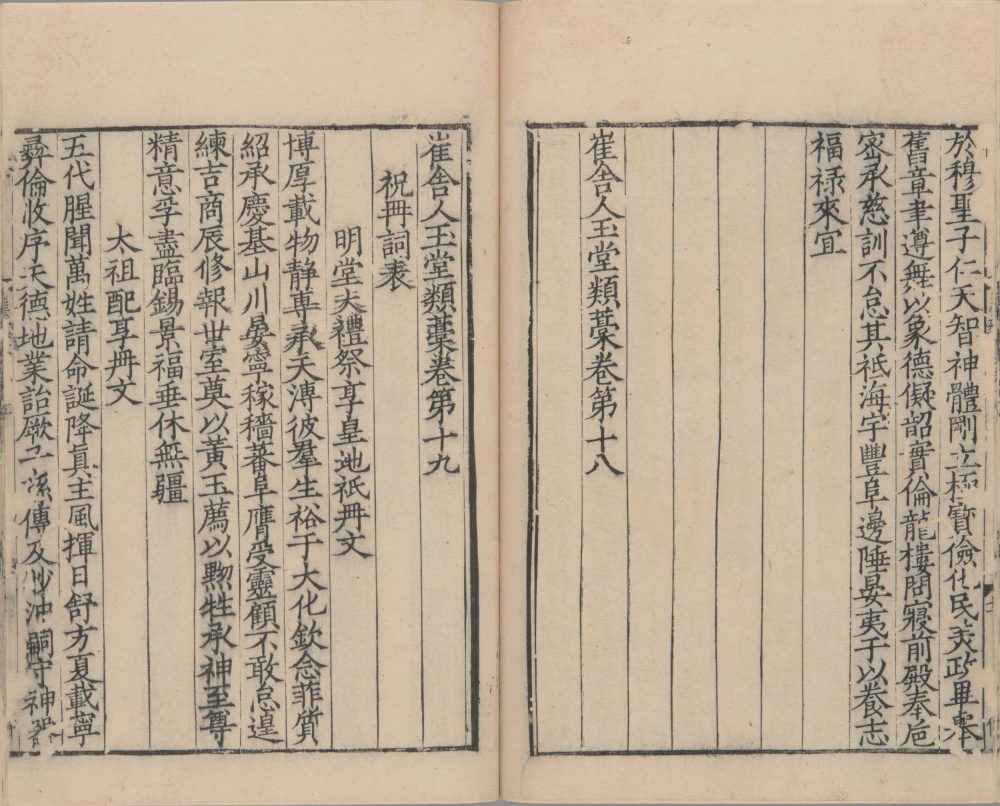 於穆聖子仁天智神體剛立極寶儉化民美政畢舉
舊章聿遵無以象德儗韶賓倫龍樓問寢前殿奉卮
密承慈訓不怠其祗海宇豐阜邊陲晏夷于以養志
福祿來宜
崔舍人玉堂類藁卷第十八
崔舍人玉堂類藁卷第十九
祝冊詞表
明堂大禮祭享皇地祇冊文
博厚載物静専承天溥彼羣生裕于大化欽念菲質
紹承慶基山川晏寧稼穡蕃阜膺受靈顧不敢怠遑
練吉商辰修報世室奠以黃玉薦以黝牲承神至尊
精意孚盡臨錫景福垂休無疆
太祖配享冊文
五代腥聞萬姓請命誕降真主風揮日舒方夏載寧
彞倫攸序天德地業詒厥子孫傳及沖嗣守神器